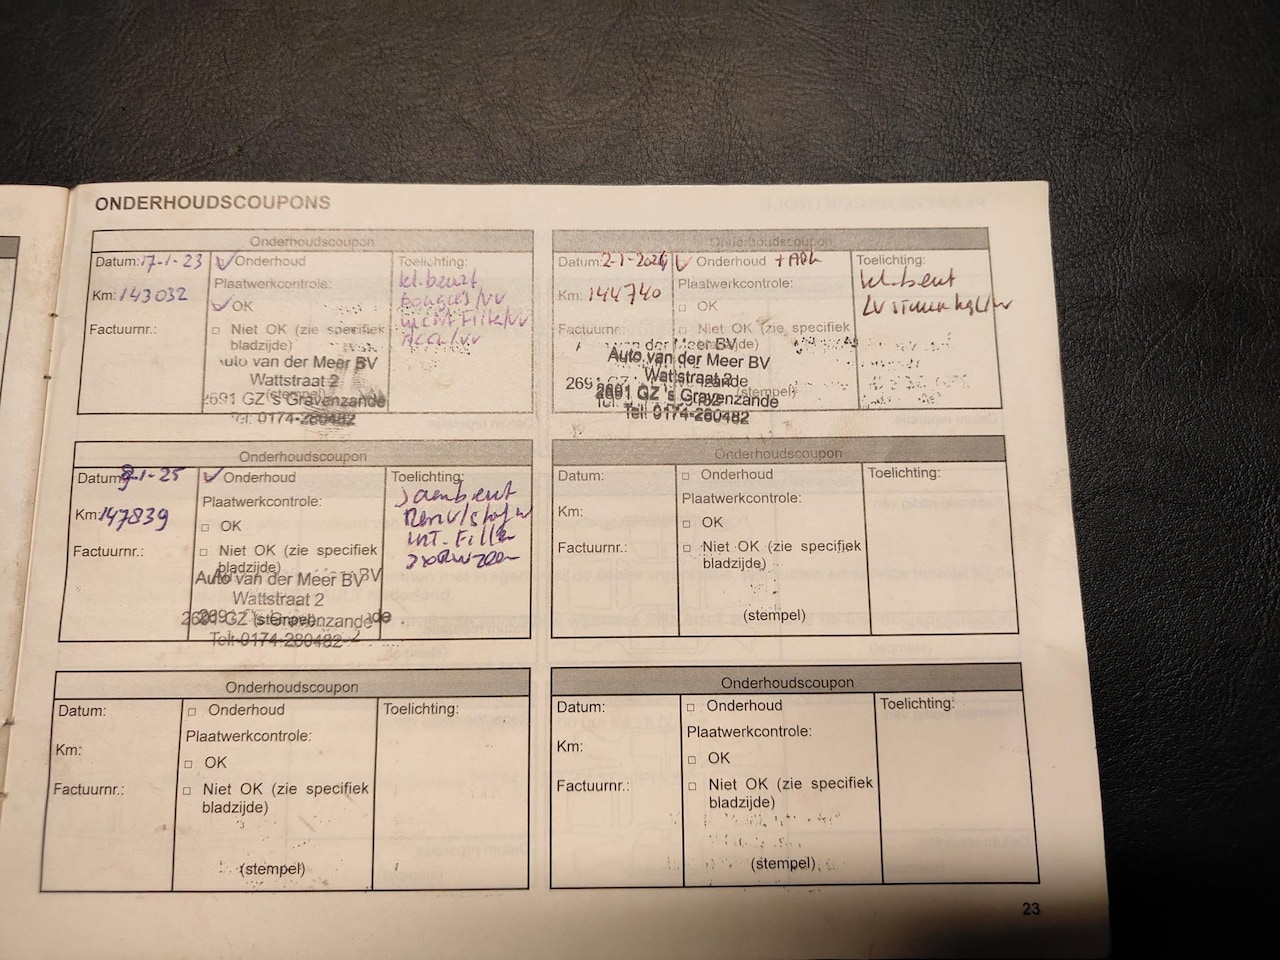 ONDERHOUDSCOUPONS
Onderhoudscoupon
Datum: 17-1-23
Km: 143032
Factuurnr.:
Onderhoud
Plaatwerkcontrole:
OK
Niet OK (zie specifiek
bladzijde)
Auto van der Meer BV
Wattstraat 2
(stempel)
2691 GZ 's Gravenzande
Tel: 0174-280482
Toelichting:
kl. beurt
bougies
Accu
Onderhoudscoupon
Datum: 2-1-2024
Km: 144740
Factuurnr.:
Onderhoud + APK
Plaatwerkcontrole:
OK
Niet OK (zie specifiek
bladzijde)
Auto van der Meer BV
Wattstraat 2
(stempel)
2691 GZ 's Gravenzande
Tel: 0174-280482
Toelichting:
kl. beurt
LV
Onderhoudscoupon
Datum: 9-1-25
Km: 147839
Factuurnr.:
Onderhoud
Plaatwerkcontrole:
OK
Niet OK (zie specifiek
bladzijde)
Auto van der Meer BV
Wattstraat 2
(stempel)
2691 GZ 's Gravenzande
Tel: 0174-280482
Toelichting:
INT. Filter
Onderhoudscoupon
Datum:
Km:
Factuurnr.:
Onderhoud
Plaatwerkcontrole:
OK
Niet OK (zie specifiek
bladzijde)
(stempel)
Toelichting:
Onderhoudscoupon
Datum:
Km:
Factuurnr.:
Onderhoud
Plaatwerkcontrole:
OK
Niet OK (zie specifiek
bladzijde)
(stempel)
Toelichting:
Onderhoudscoupon
Datum:
Km:
Factuurnr.:
Onderhoud
Plaatwerkcontrole:
OK
Niet OK (zie specifiek
bladzijde)
(stempel)
Toelichting:
23